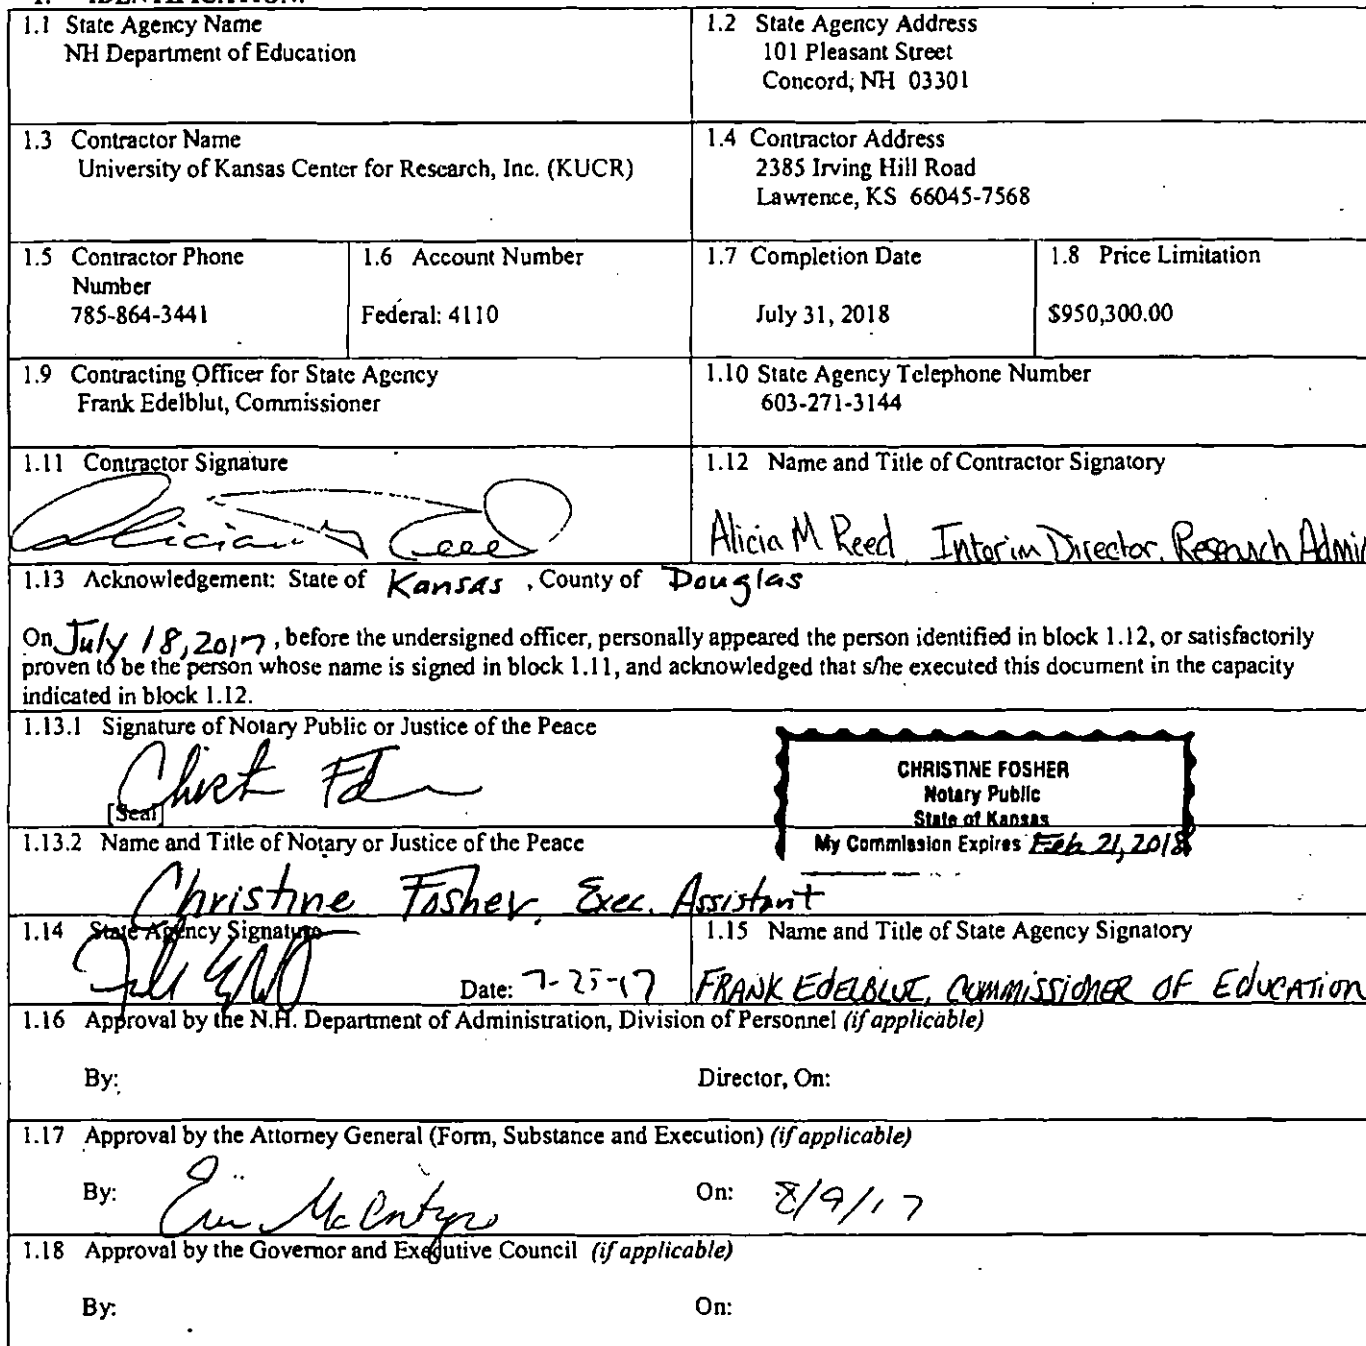 1.1 State Agency Name
NH Department of Education
1.2 State Agency Address
101 Pleasant Street
Concord, NH 03301
1.3 Contractor Name
University of Kansas Center for Research, Inc. (KUCR)
1.4 Contractor Address
2385 Irving Hill Road
Lawrence, KS 66045-7568
1.5 Contractor Phone
Number
785-864-3441
1.6 Account Number
Federal: 4110
1.7 Completion Date
July 31, 2018
1.8 Price Limitation
$950,300.00
1.9 Contracting Officer for State Agency
Frank Edelblut, Commissioner
1.10 State Agency Telephone Number
603-271-3144
1.11 Contractor Signature
1.12 Name and Title of Contractor Signatory
Alicia M Reed, Interim Director, Research Admin
1.13 Acknowledgement: State of Kansas , County of Douglas
On July 18, 2017, before the undersigned officer, personally appeared the person identified in block 1.12, or satisfactorily
proven to be the person whose name is signed in block 1.11, and acknowledged that s/he executed this document in the capacity
indicated in block 1.12.
1.13.1 Signature of Notary Public or Justice of the Peace
[Seal]
CHRISTINE FOSHER
Notary Public
State of Kansas
My Commission Expires Feb 21, 2018
1.13.2 Name and Title of Notary or Justice of the Peace
Christine Fosher, Exec. Assistant
1.14 State Agency Signature
Date: 7-25-17
1.15 Name and Title of State Agency Signatory
FRANK EDELBLUT, COMMISSIONER OF EDUCATION
1.16 Approval by the N.H. Department of Administration, Division of Personnel (if applicable)
By:
Director, On:
1.17 Approval by the Attorney General (Form, Substance and Execution) (if applicable)
By:
On: 8/9/17
1.18 Approval by the Governor and Executive Council (if applicable)
By:
On: